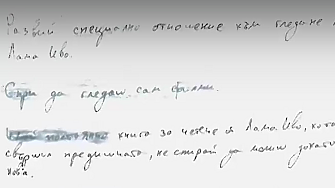 Развий специално отношение към гледане н
Лама Иво.
Спри да гледаш сам филми.
книга за четене от Лама Иво, кога
свърши предишната, не спирай да можеш докато
нова.